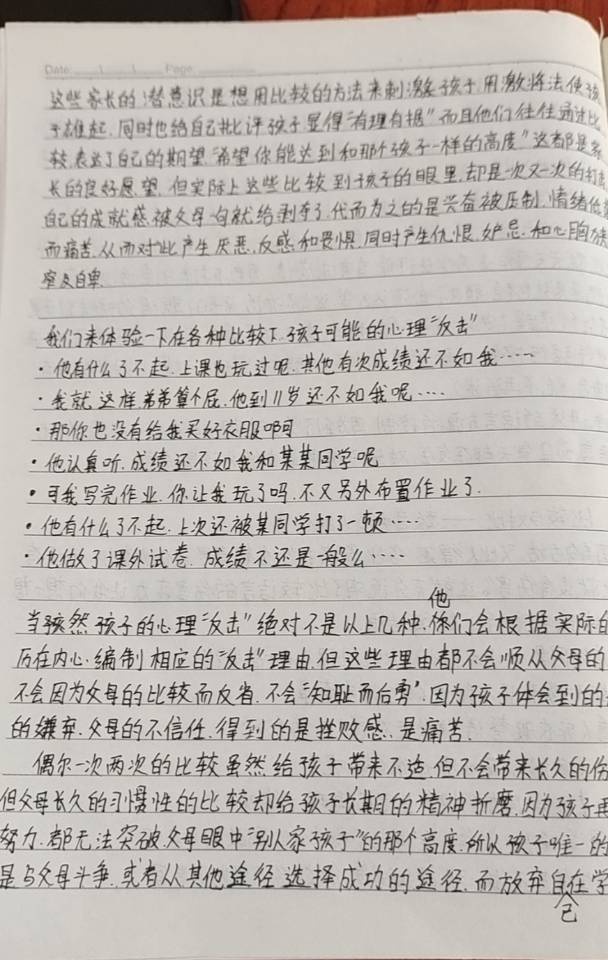 Date Page
这些家长的潜意识是想用比较的方法来刺激孩子.用激将法使孩
子雄起.同时也给自己批评孩子显得"有理有据"而且他们往往通过比
较.表达了自己的期望."希望你能达到和那个孩子一样的高度"这都是家
长的良好愿望.但实际上这些比较到孩子的眼里.却是一次又一次的打击
自己的成就感.被父母一句就给剥夺了.代而为之的是兴奋被压制.情绪低落
而痛苦.从而对此产生厌恶.反感和畏惧.同时产生仇恨.妒忌.和心胸狭
窄及自卑.
我们来体验一下在各种比较下.孩子可能的心理"反击"
·他有什么了不起.上课也玩过呢.其他有次成绩还不如我……
·我就这样.弟弟算个屁.他到11岁还不如我呢……
·那你也没有给我买好衣服啊
·他认真听.成绩还不如我和某某同学呢
·可我写完作业.你让我玩了吗.不又另外布置作业了.
·他有什么了不起.上次还被某同学打了一顿……
·他做了课外试卷.成绩不还是一般么……
他
当然孩子的心理"反击"绝对不是以上几种.们会根据实际的
历在内心.编制相应的"反击"理由.但这些理由都不会顺从父母的
不会因为父母的比较而反省.不会"知耻而后勇".因为孩子体会到的是
的嫌弃.父母的不信任.得到的是挫败感.是痛苦.
偶尔一次两次的比较虽然给孩子带来不适.但不会带来长久的伤
但父母长久的习惯性的比较却给孩子长期的精神折磨.因为孩子再
努力.都无法突破父母眼中"别人家孩子"的那个高度.所以孩子唯一的
是与父母斗争.或者从其他途径选择成功的途径.而放弃自在学
己